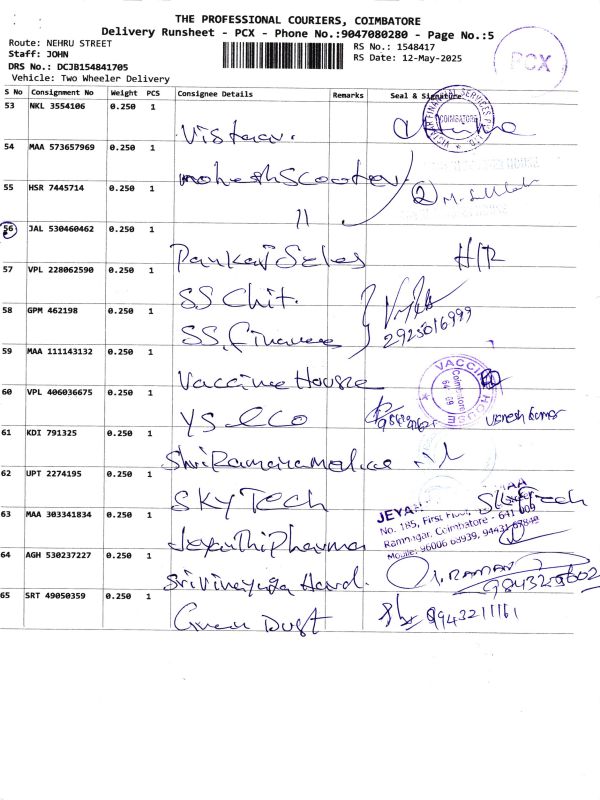 THE PROFESSIONAL COURIERS, COIMBATORE
Delivery Runsheet - PCX - Phone No.:9047080280 - Page No.:5
Route: NEHRU STREET
Staff: JOHN
DRS No.: DCJB154841705
Vehicle: Two Wheeler Delivery
RS No.: 1548417
RS Date: 12-May-2025
PCX
S No Consignment No Weight PCS Consignee Details Remarks Seal & Signature
53 NKL 3554106 0.250 1 Vistaar.
VICTMAR FINANCIAL SERVICES COIMBATORE
54 MAA 573657969 0.250 1 mahesh Scooter
55 HSR 7445714 0.250 1 11
2
56 JAL 530460462 0.250 1 Pankaj Sales H/R
57 VPL 228062590 0.250 1 SS Chit.
58 GPM 462198 0.250 1 SS. Finance
2925016999
59 MAA 111143132 0.250 1 Vaccine House
VACCINE HOUSE Coimbatore
60 VPL 406036675 0.250 1
61 KDI 791325 0.250 1 Shri Ramana
62 UPT 2274195 0.250 1 SKY Tech
63 MAA 303341834 0.250 1 Jeyanthi Pharma
No. 185, First Floor,
Ramnagar, Coimbatore - 641 009
64 AGH 530237227 0.250 1 Sri Vinayaga Hard.
RAMAN
9843209602
65 SRT 49050359 0.250 1 Green Dust
9943211161